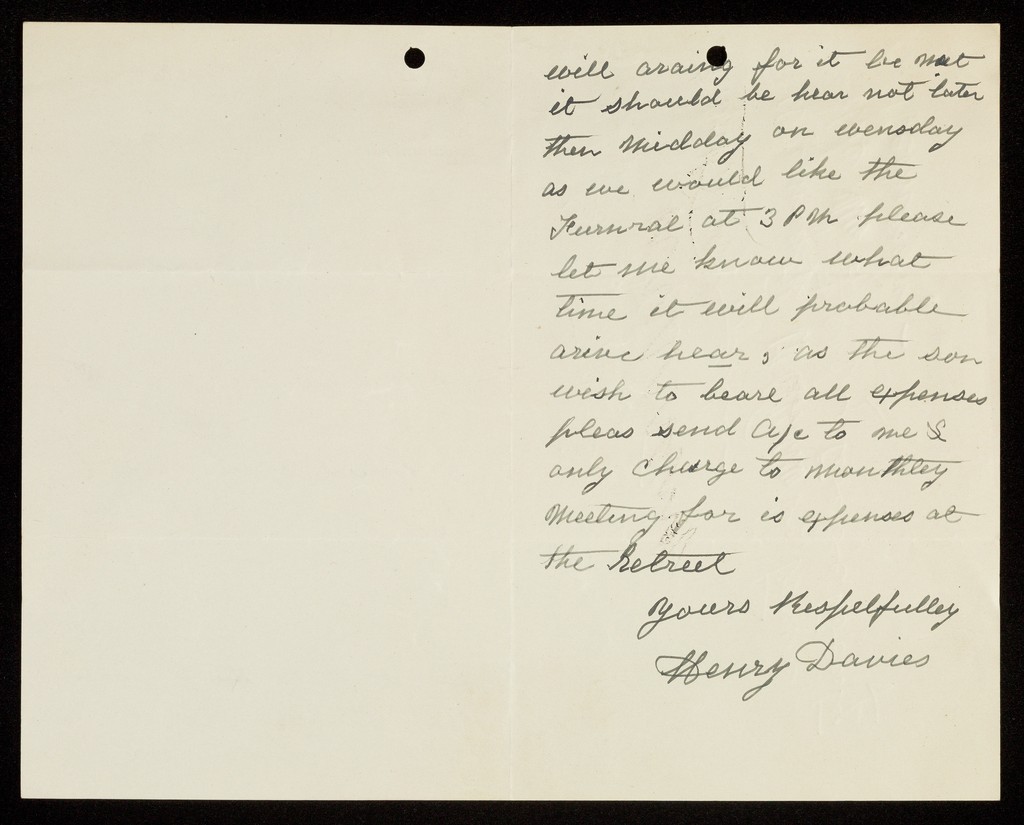 will araing for it be met
it should be hear not later
then Midday on wensday
as we would like the
Furnral at 3 PM please
let me know what
time it will probable
arive hear, as the son
wish to beare all expenses
pleas send a/c to me &
only charge to Monthley
Meeting for is expenses at
the Retreet
Yours Respelfulley
Henry Davies